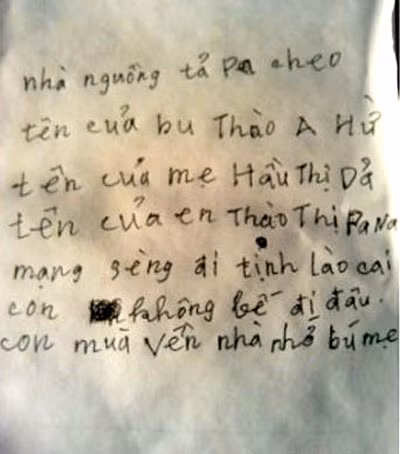 nhà nguông tả Pa cheo
tên cuả bu Thào A Hử
tên cuả mẹ Hầu Thị Dả
tên cuả en Thào Thị Pa Na
mạng sèng đi tịnh lào cai
con không bế đi đâu.
con muà vến nhà nhở bú mẹ